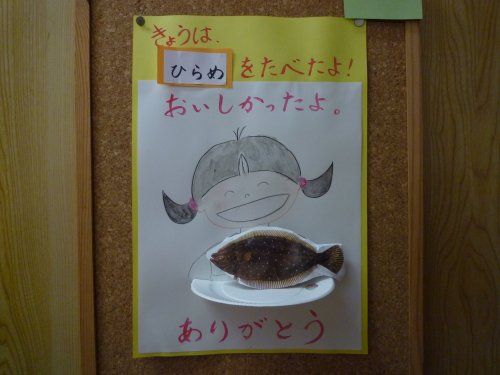 きょうは、
ひらめ をたべたよ!
おいしかったよ。
ありがとう